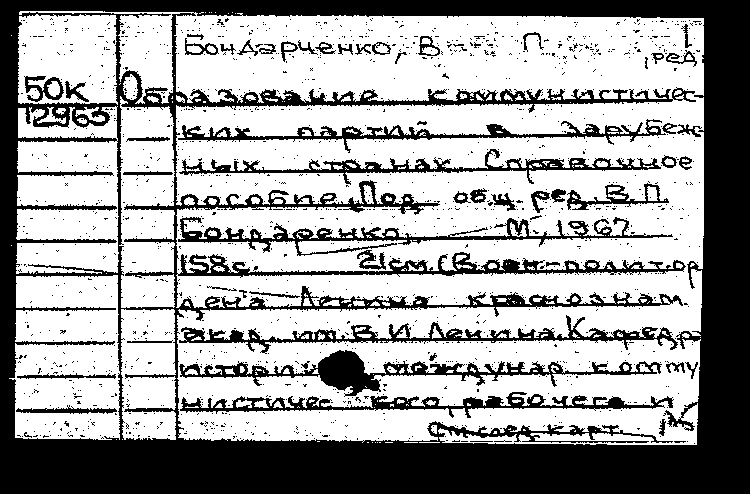 Бондарченко, В. П.
, ред.
50к
12963
Образование коммунистичес-
ких партий в заруб​еж-
ных странах. Справочное
пособие. Под общ. ред. В. П.
Бондаренко. М., 1967.
158с. 21см. (Воен.-полит. ор
дена Ленина краснознам.
акад. им. В. И. Ленина. Кафедра
истории междунар комму
нистичес- кого, рабочего и
См. след. карт.